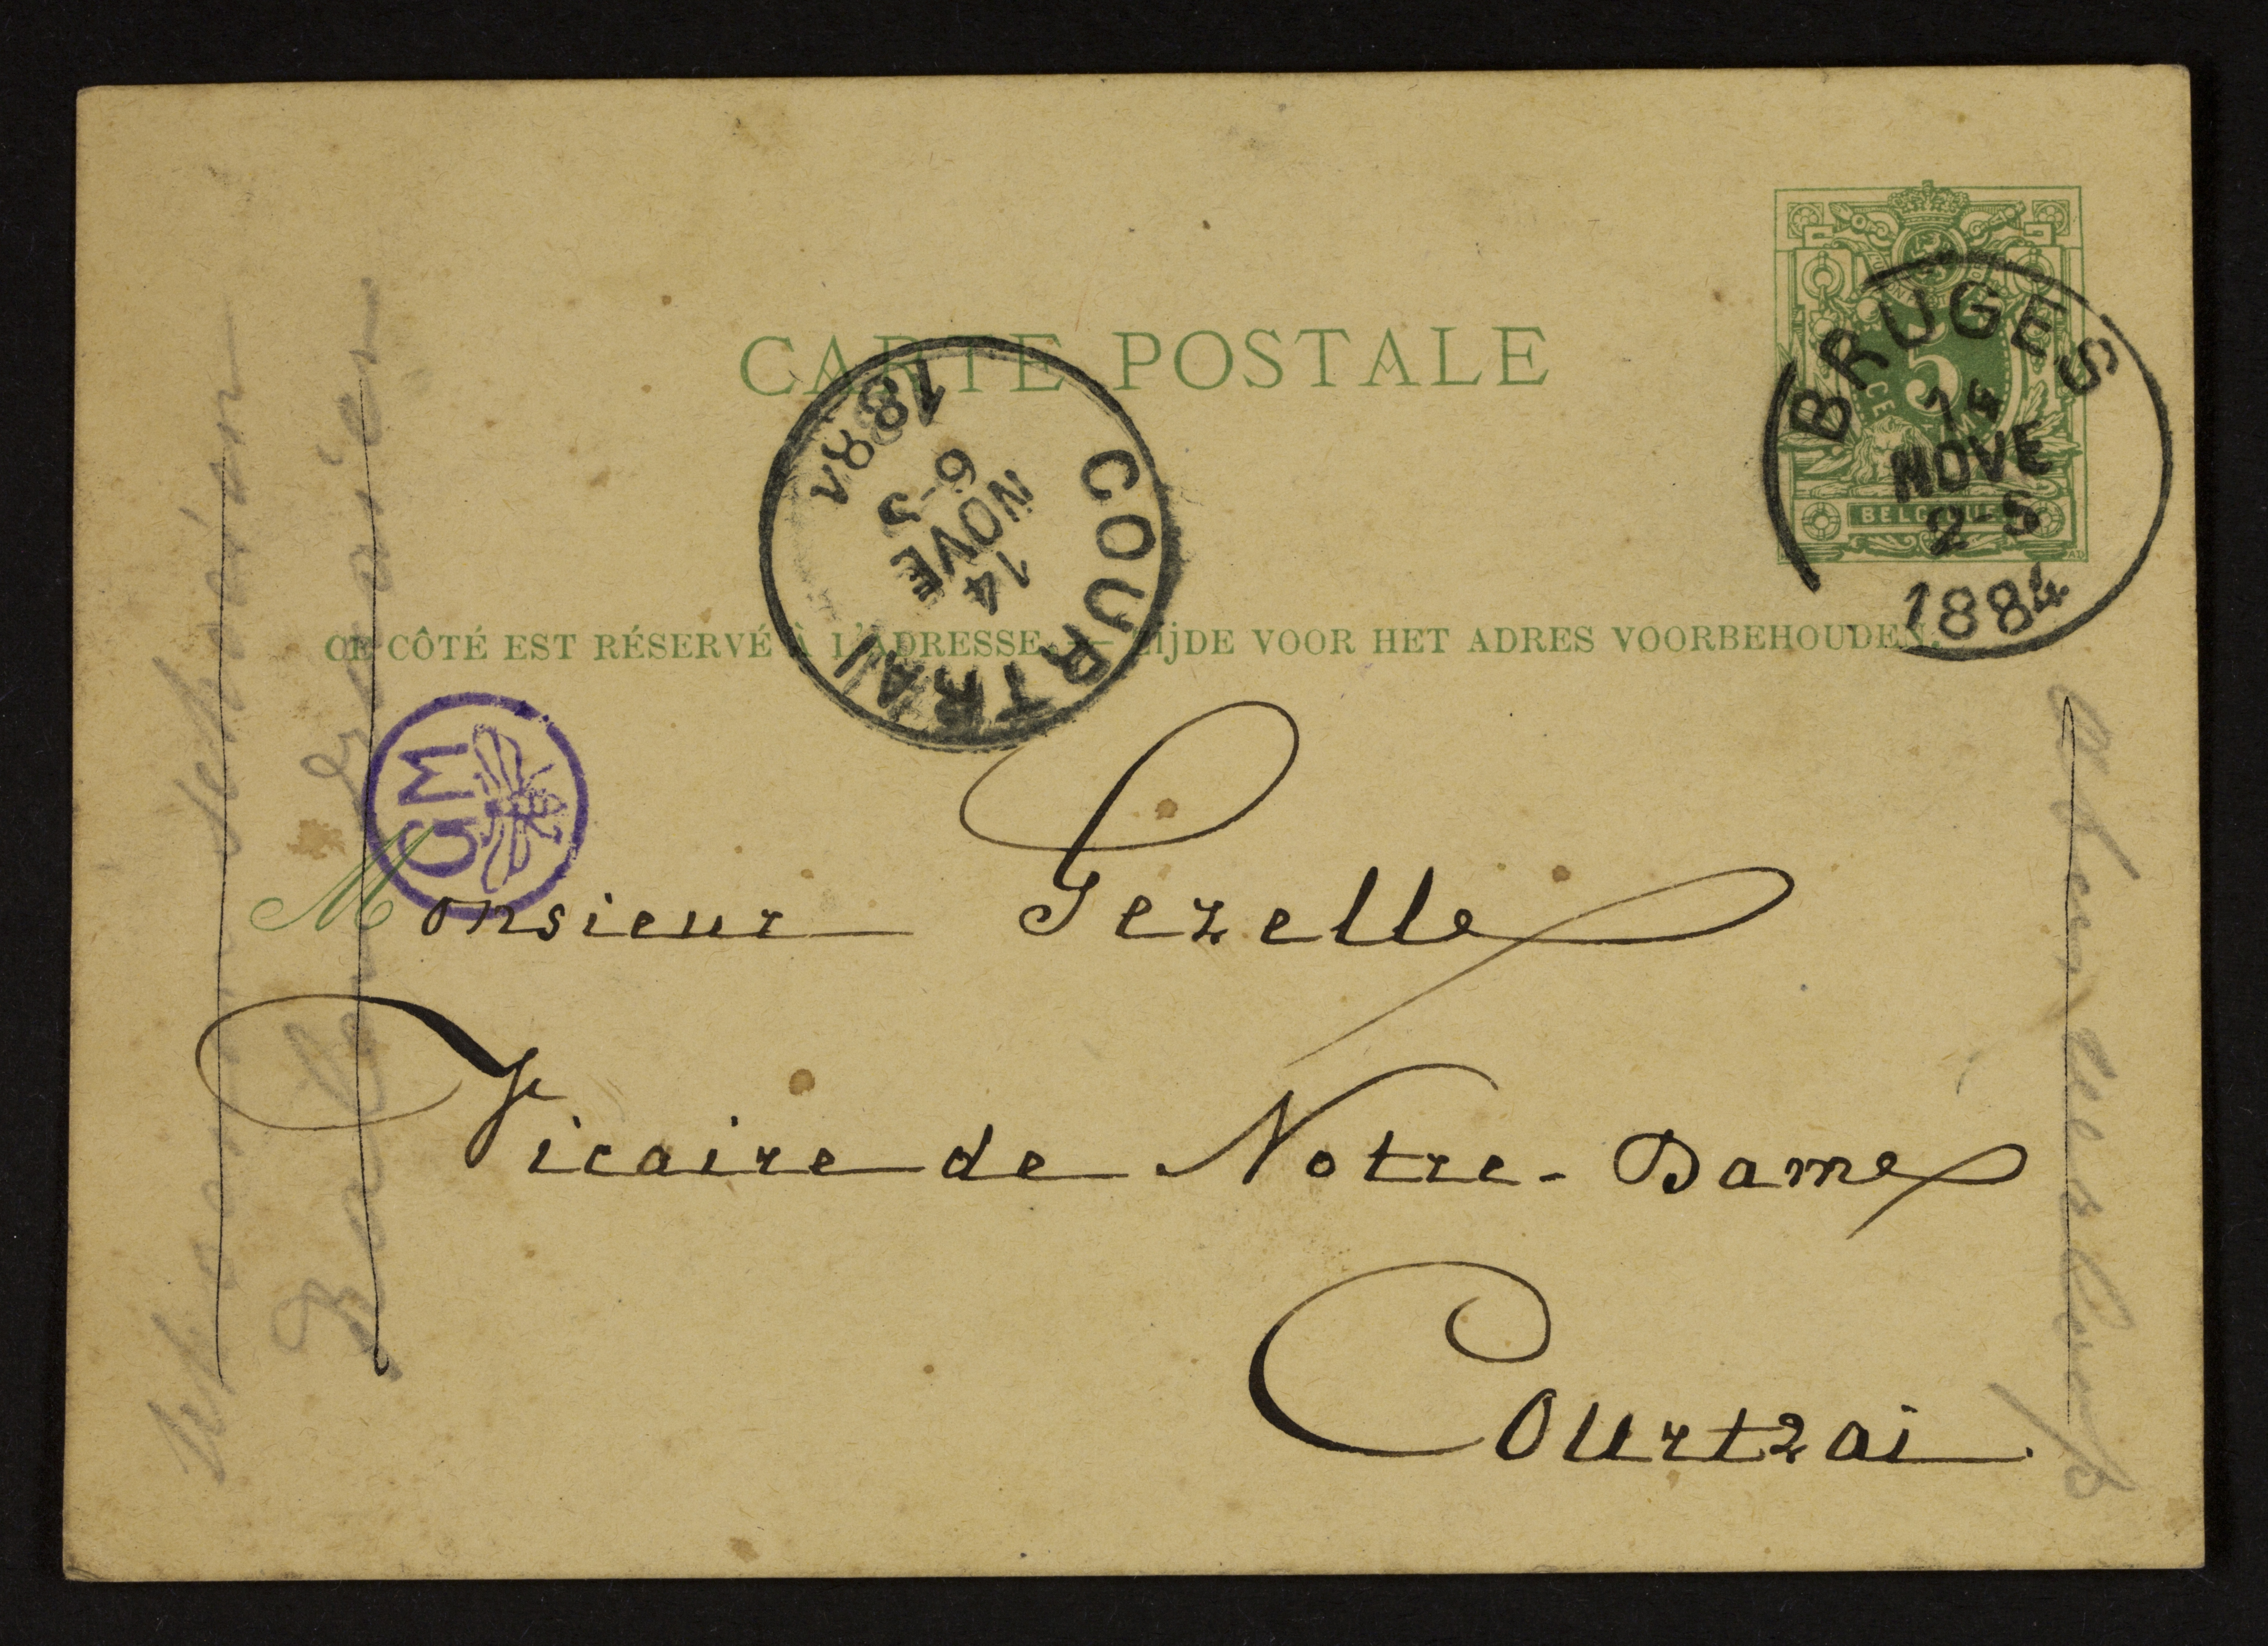 CARTE POSTALE
CE CÔTÉ EST RÉSERVÉ À L'ADRESSE. — ZIJDE VOOR HET ADRES VOORBEHOUDEN.
5
BELGIQUE
BRUGES
14
NOVE
2-5
1884
COURTRAI
14
NOVE
6-S
188
GM
Monsieur Gezelle
Vicaire de Notre-Dame
Courtrai.